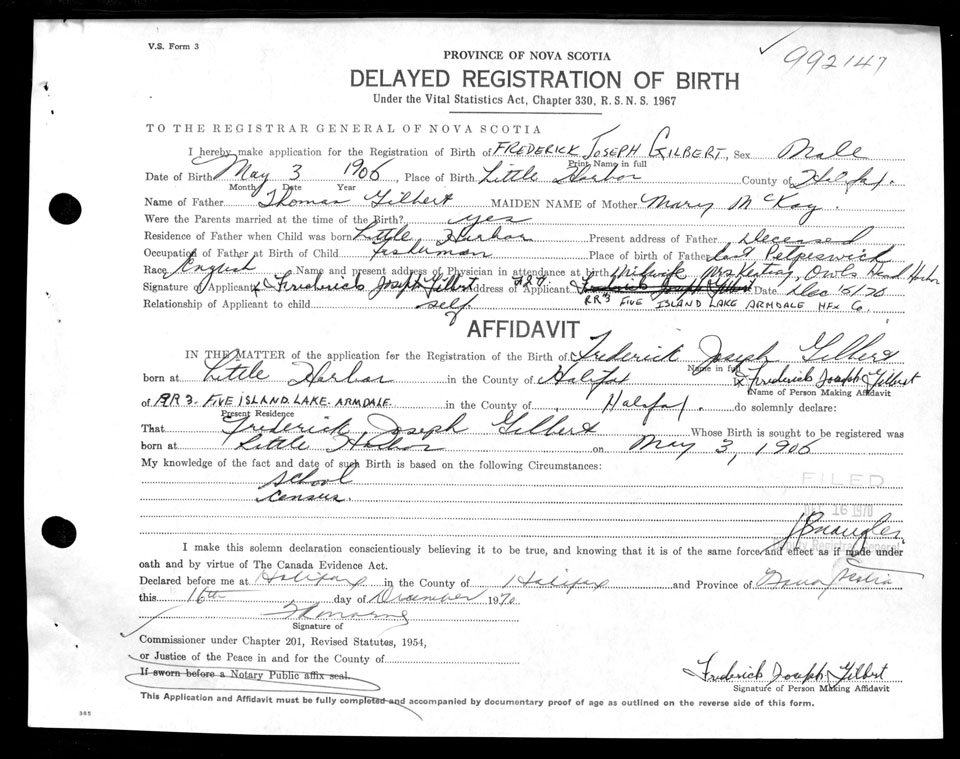 V.S. Form 3
992147
PROVINCE OF NOVA SCOTIA
DELAYED REGISTRATION OF BIRTH
Under the Vital Statistics Act, Chapter 330, R.S.N.S. 1967
TO THE REGISTRAR GENERAL OF NOVA SCOTIA
I hereby make application for the Registration of Birth of FREDERICK JOSEPH GILBERT, Sex Male
Print Name in full
Date of Birth May 3 1906, Place of Birth Little Harbor County of Halifax.
Month Date Year
Name of Father Thomas Gilbert MAIDEN NAME of Mother Mary McKay.
Were the Parents married at the time of the Birth? yes
Residence of Father when Child was born Little Harbor Present address of Father Deceased
Occupation of Father at Birth of Child fisherman Place of birth of Father East Petpeswick
Race English Name and present address of Physician in attendance at birth Midwife Mrs Keating, Owls Head Harbor
Signature of Applicant x Frederick Joseph Gilbert Address of Applicant Frederick Joseph Gilbert Date Dec 15/70
Relationship of Applicant to child self RR3 FIVE ISLAND LAKE ARMDALE HFX Co.
AFFIDAVIT
IN THE MATTER of the application for the Registration of the Birth of Frederick Joseph Gilbert
Name in full
born at Little Harbor in the County of Halifax x Frederick Joseph Gilbert
Name of Person Making Affidavit
of RR3. FIVE ISLAND. LAKE. ARMDALE. in the County of Halifax. do solemnly declare:
Present Residence
That Frederick Joseph Gilbert Whose Birth is sought to be registered was
born at Little Harbor on May 3, 1906
My knowledge of the fact and date of such Birth is based on the following Circumstances:
School
Census.
FILED
16 1970
I make this solemn declaration conscientiously believing it to be true, and knowing that it is of the same force and effect as if made under
oath and by virtue of The Canada Evidence Act.
Declared before me at Halifax in the County of Halifax and Province of Nova Scotia
this 16th day of December 1970
Signature of
Commissioner under Chapter 201, Revised Statutes, 1954,
or Justice of the Peace in and for the County of
If sworn before a Notary Public affix seal.
Frederick Joseph Gilbert
Signature of Person Making Affidavit
This Application and Affidavit must be fully completed and accompanied by documentary proof of age as outlined on the reverse side of this form.
385